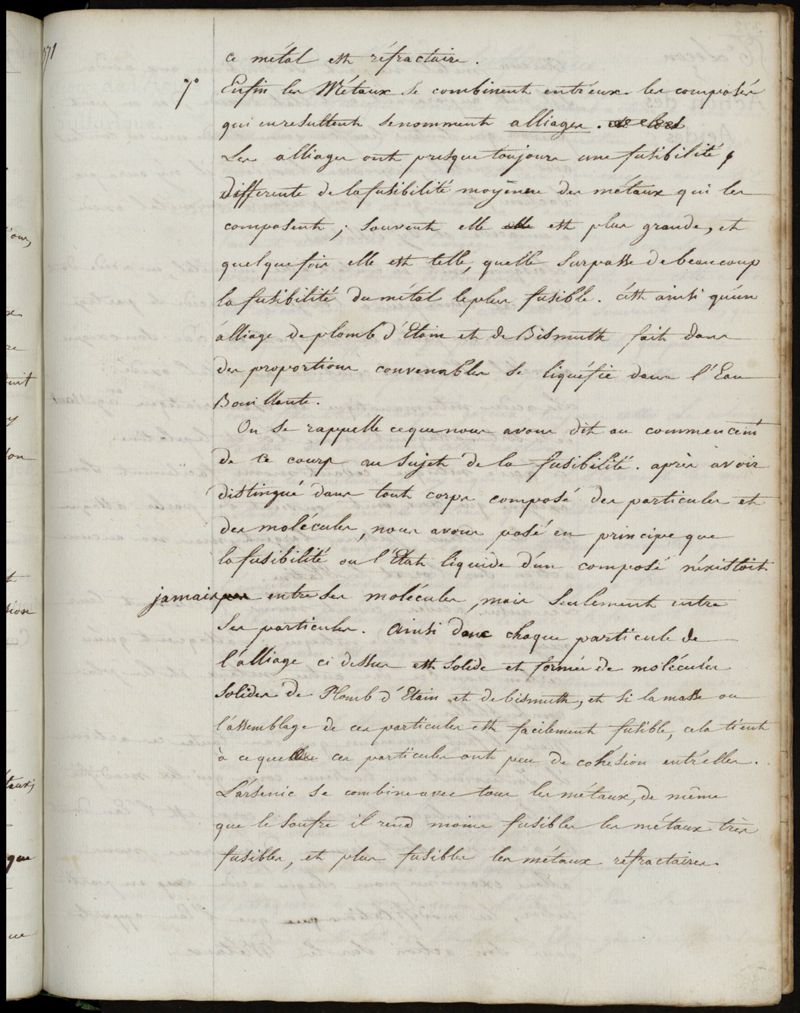 571
ce métal est réfractaire.
7° Enfin les Métaux se combinent entr'eux les composés
qui en resultent se nomment alliages.
Les alliages ont presque toujours une fusibilité
differente de la fusibilité moyenne des métaux qui les
composent; souvent elle est plus grande, et
quelque fois elle est telle, quelle surpasse de beaucoup
la fusibilité du métal le plus fusible. c'est ainsi qu'un
alliage de plomb d'Etain et de Bismuth fait dans
des proportions convenables se liquéfie dans l'Eau
Bouillante.
On se rappelle ce que nous avons dit au commencemt
de ce cours au sujet de la fusibilité. après avoir
distingué dans tout corps composé des particules et
des molécules, nous avons posé en principe que
la fusibilité ou l'Etat liquide d'un composé n'existoit
jamais entre ses molécules, mais seulement entre
ses particules. ainsi donc chaque particule de
l'alliage ci dessus est solide et formée de molécules
solides de Plomb d'Etain et de bismuth, et si la masse ou
l'assemblage de ces particules est facilement fusible, cela tient
à ce que ces particules ont peu de cohésion entr'elles.
L'arsenic se combine avec tous les métaux, de même
que le soufre il rend moins fusibles les métaux très
fusibles, et plus fusibles les métaux réfractaires.